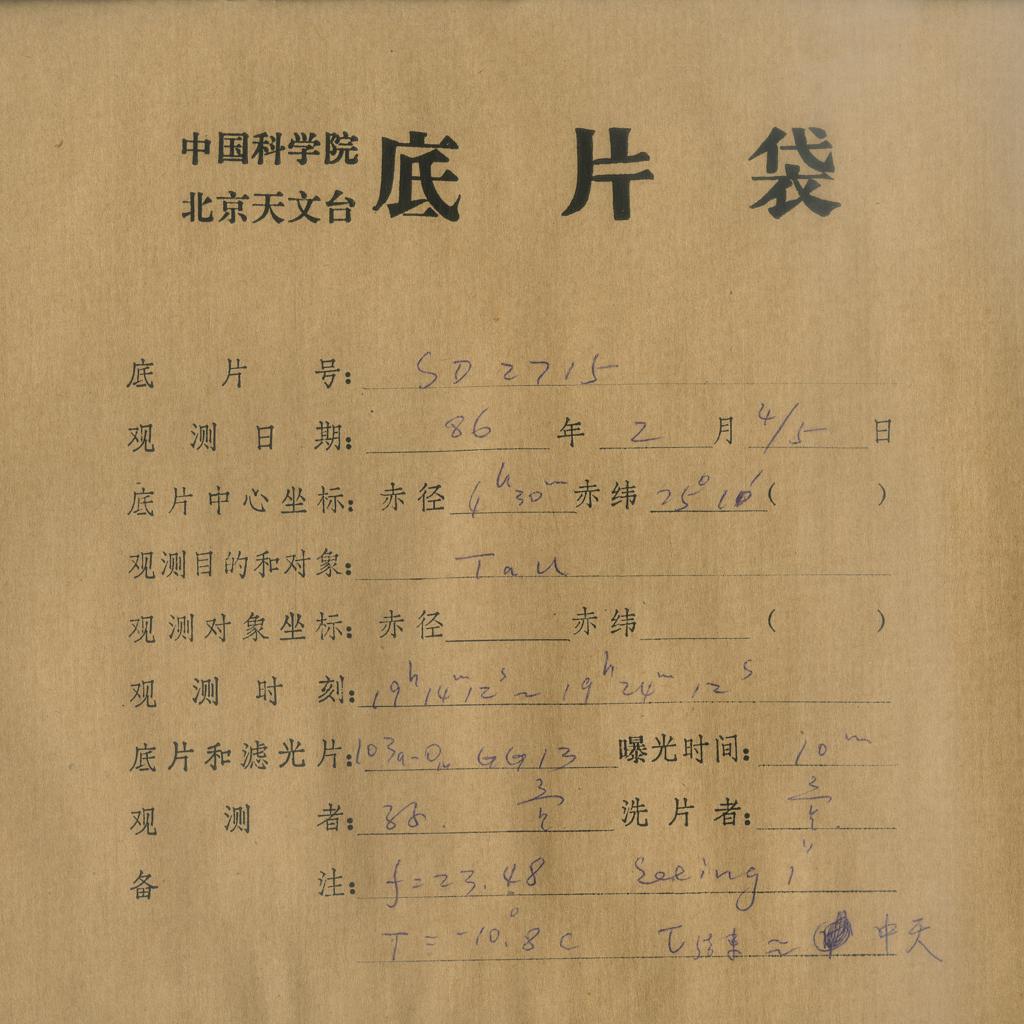 中国科学院
北京天文台
底片袋
底片号: SD2715
观测日期: 86年2月4/5日
底片中心坐标: 赤径 4h30m 赤纬 25°10′( )
观测目的和对象: Tau
观测对象坐标: 赤径 赤纬 ( )
观测时刻: 19h14m12s~19h24m12s
底片和滤光片: 103a-O, GG13 曝光时间: 10m
观测者: 洗片者:
备注: f=23.48 Seeing 1″
T=-10°.8C τ结束≈中天